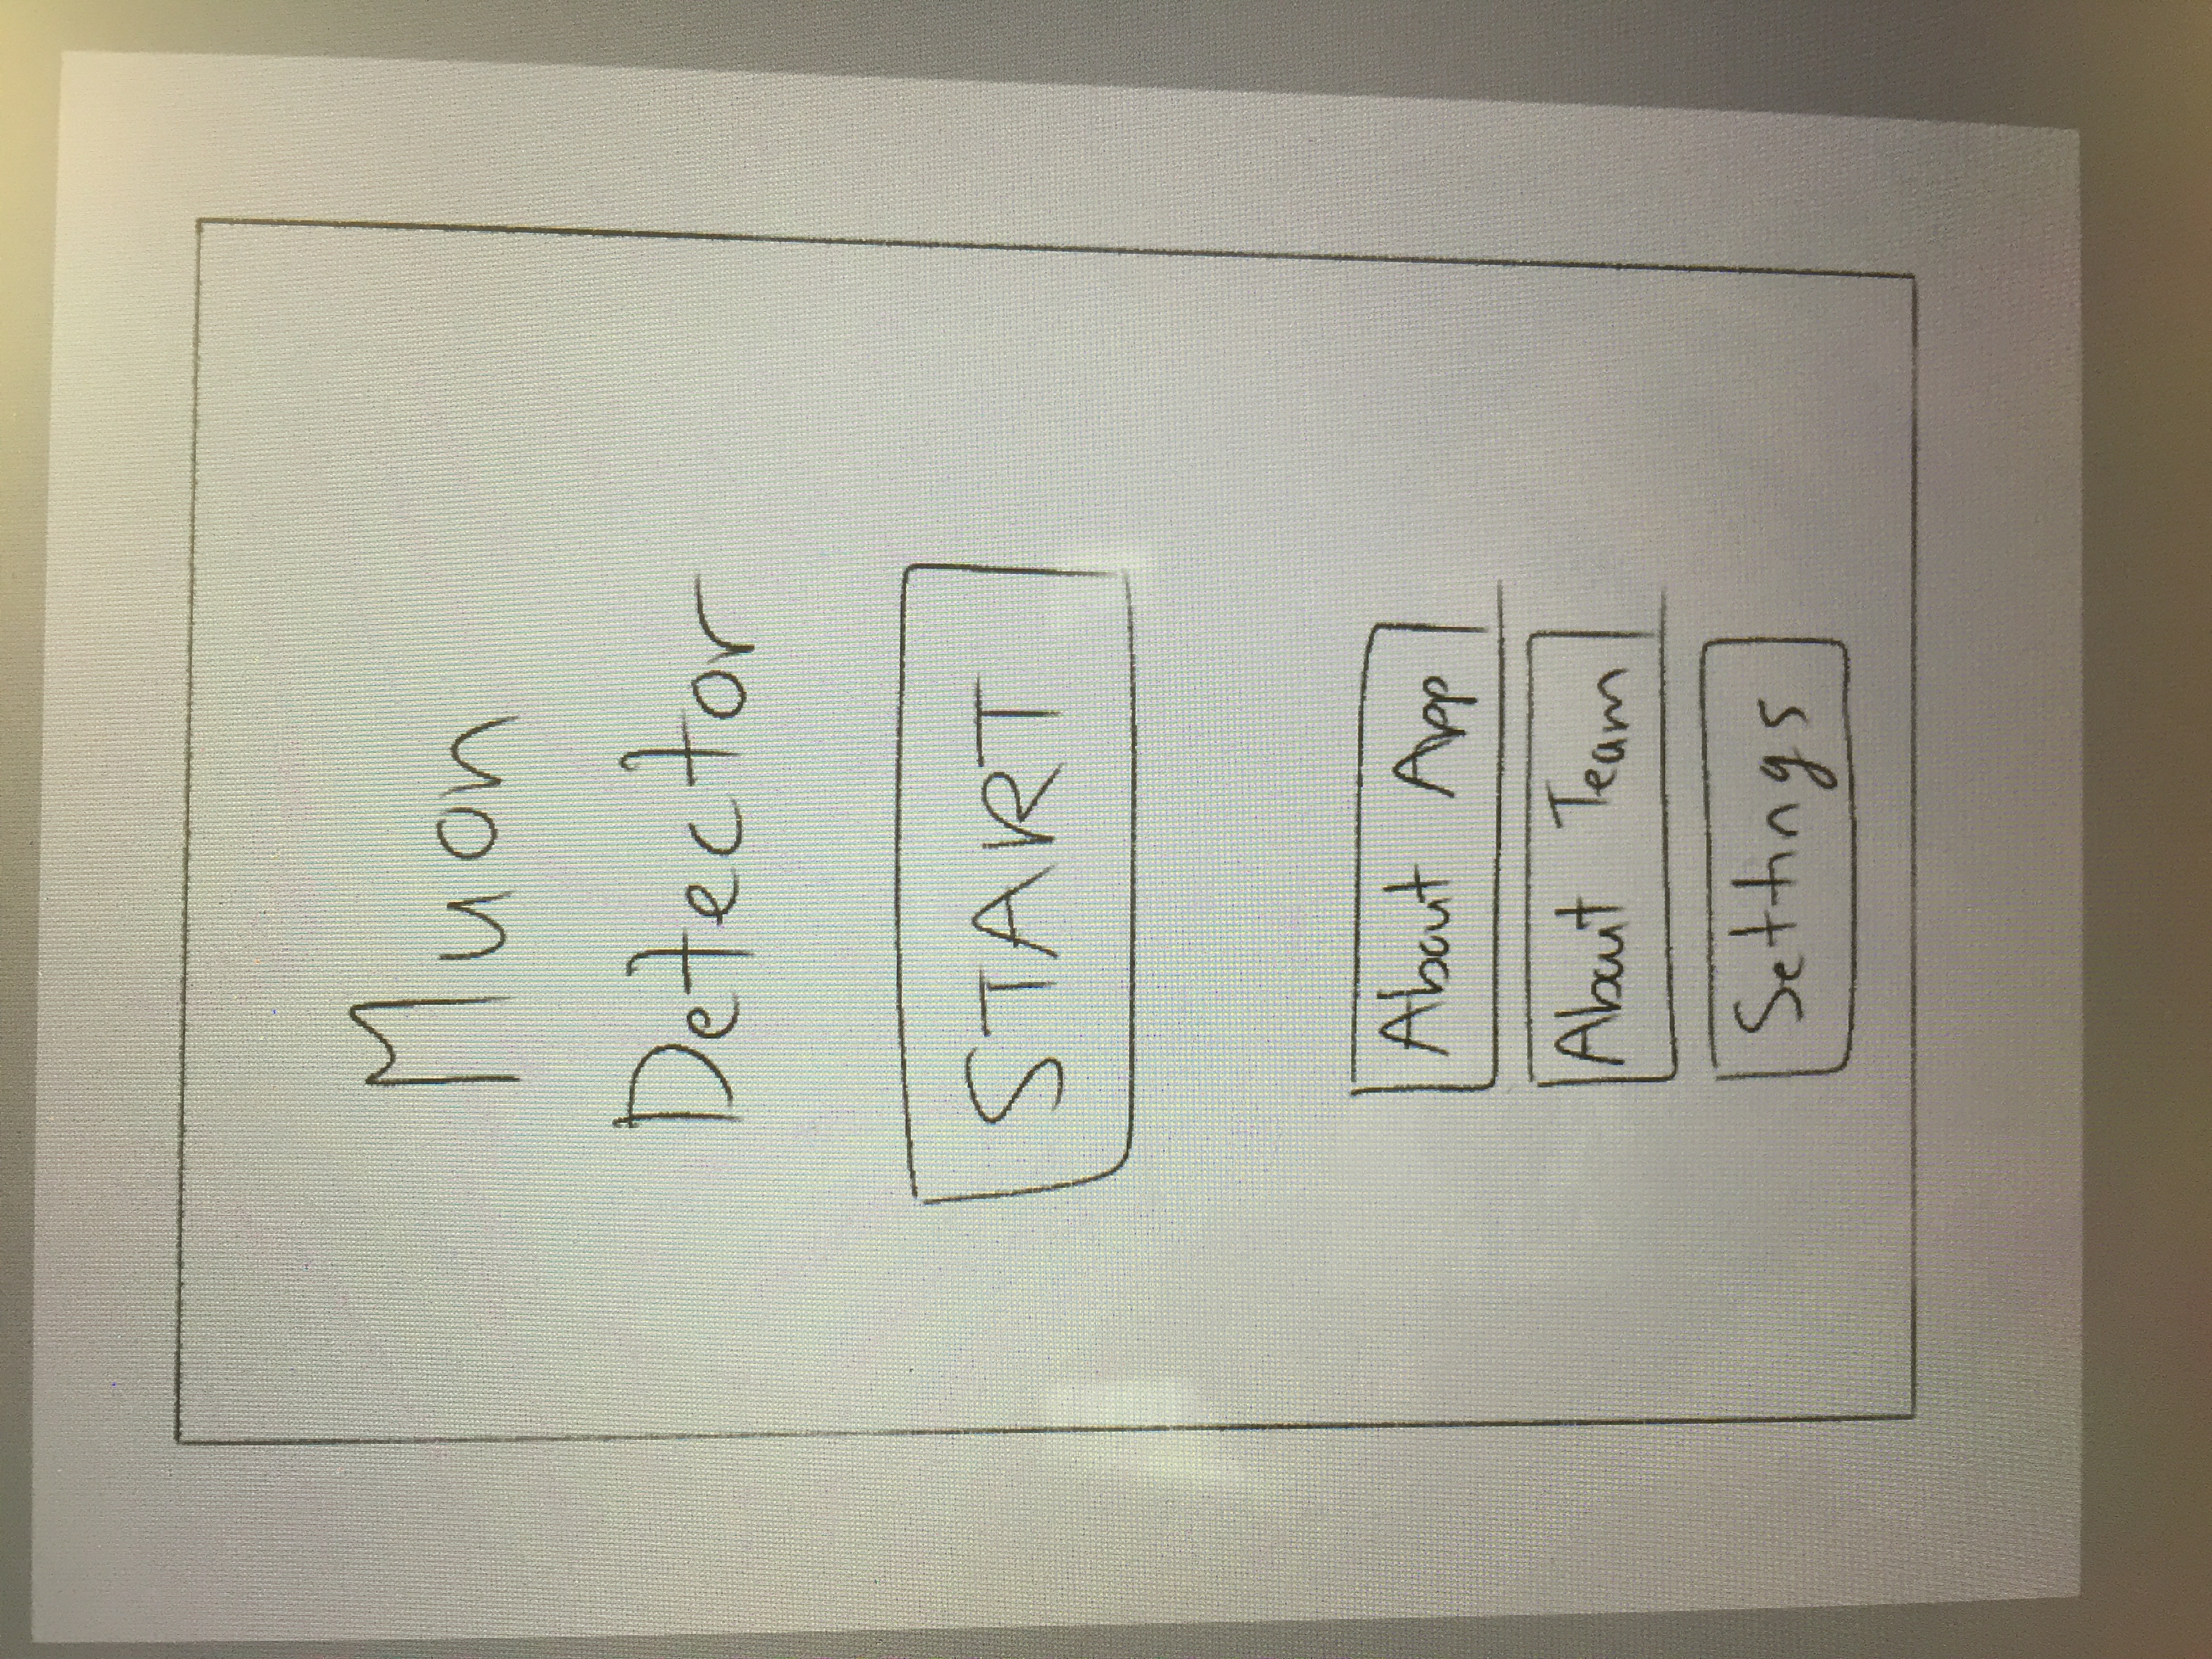 Muon
Detector
START
About App
About Team
Settings